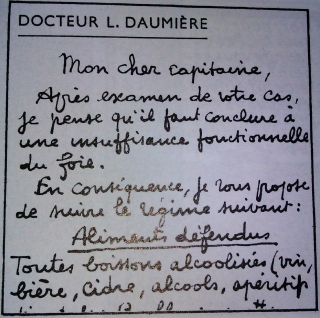 DOCTEUR L. DAUMIÈRE
Mon cher capitaine,
Après examen de votre cas,
je pense qu'il faut conclure à
une insuffisance fonctionnelle
du foie.
En conséquence, je vous propose
de suivre le régime suivant :
Aliments défendus
Toutes boissons alcoolisées (vin,
bière, cidre, alcools, apéritifs